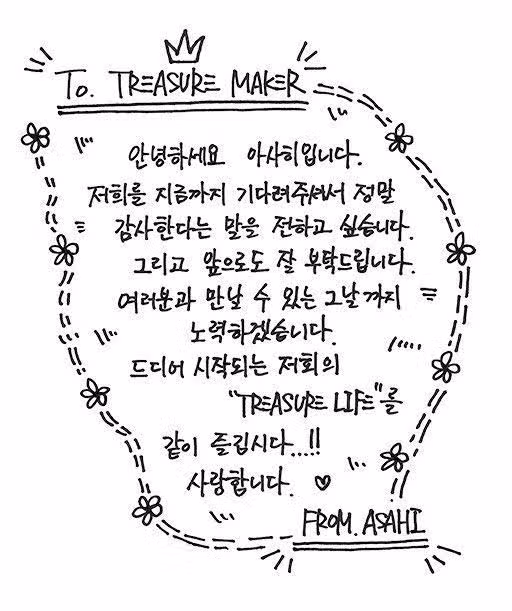 To. TREASURE MAKER
안녕하세요 아사히입니다.
저희를 지금까지 기다려주셔서 정말
감사한다는 말을 전하고 싶습니다.
그리고 앞으로도 잘 부탁드립니다.
여러분과 만날 수 있는 그날까지
노력하겠습니다.
드디어 시작되는 저희의
"TREASURE LIFE"를
같이 즐깁시다...!!
사랑합니다. ♡
FROM. ASAHI